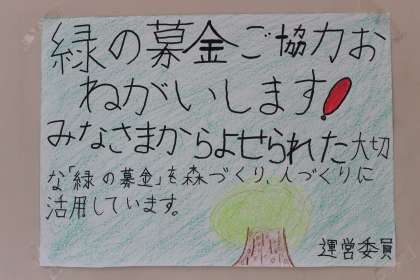 緑の募金ご協力お
ねがいします!
みなさまからよせられた大切
な「緑の募金」を森づくり、人づくりに
活用しています。
運営委員